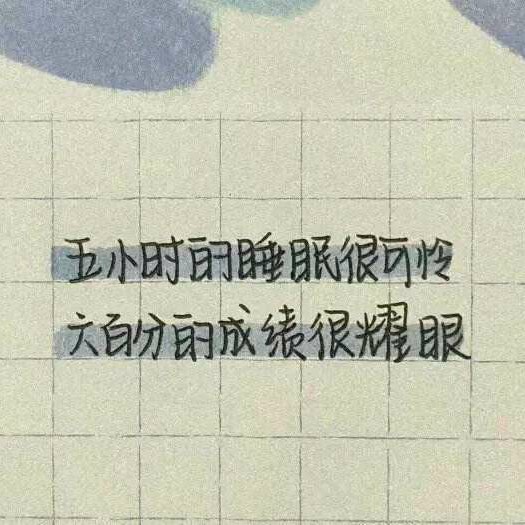 五小时的睡眠很可怜
六百分的成绩很耀眼